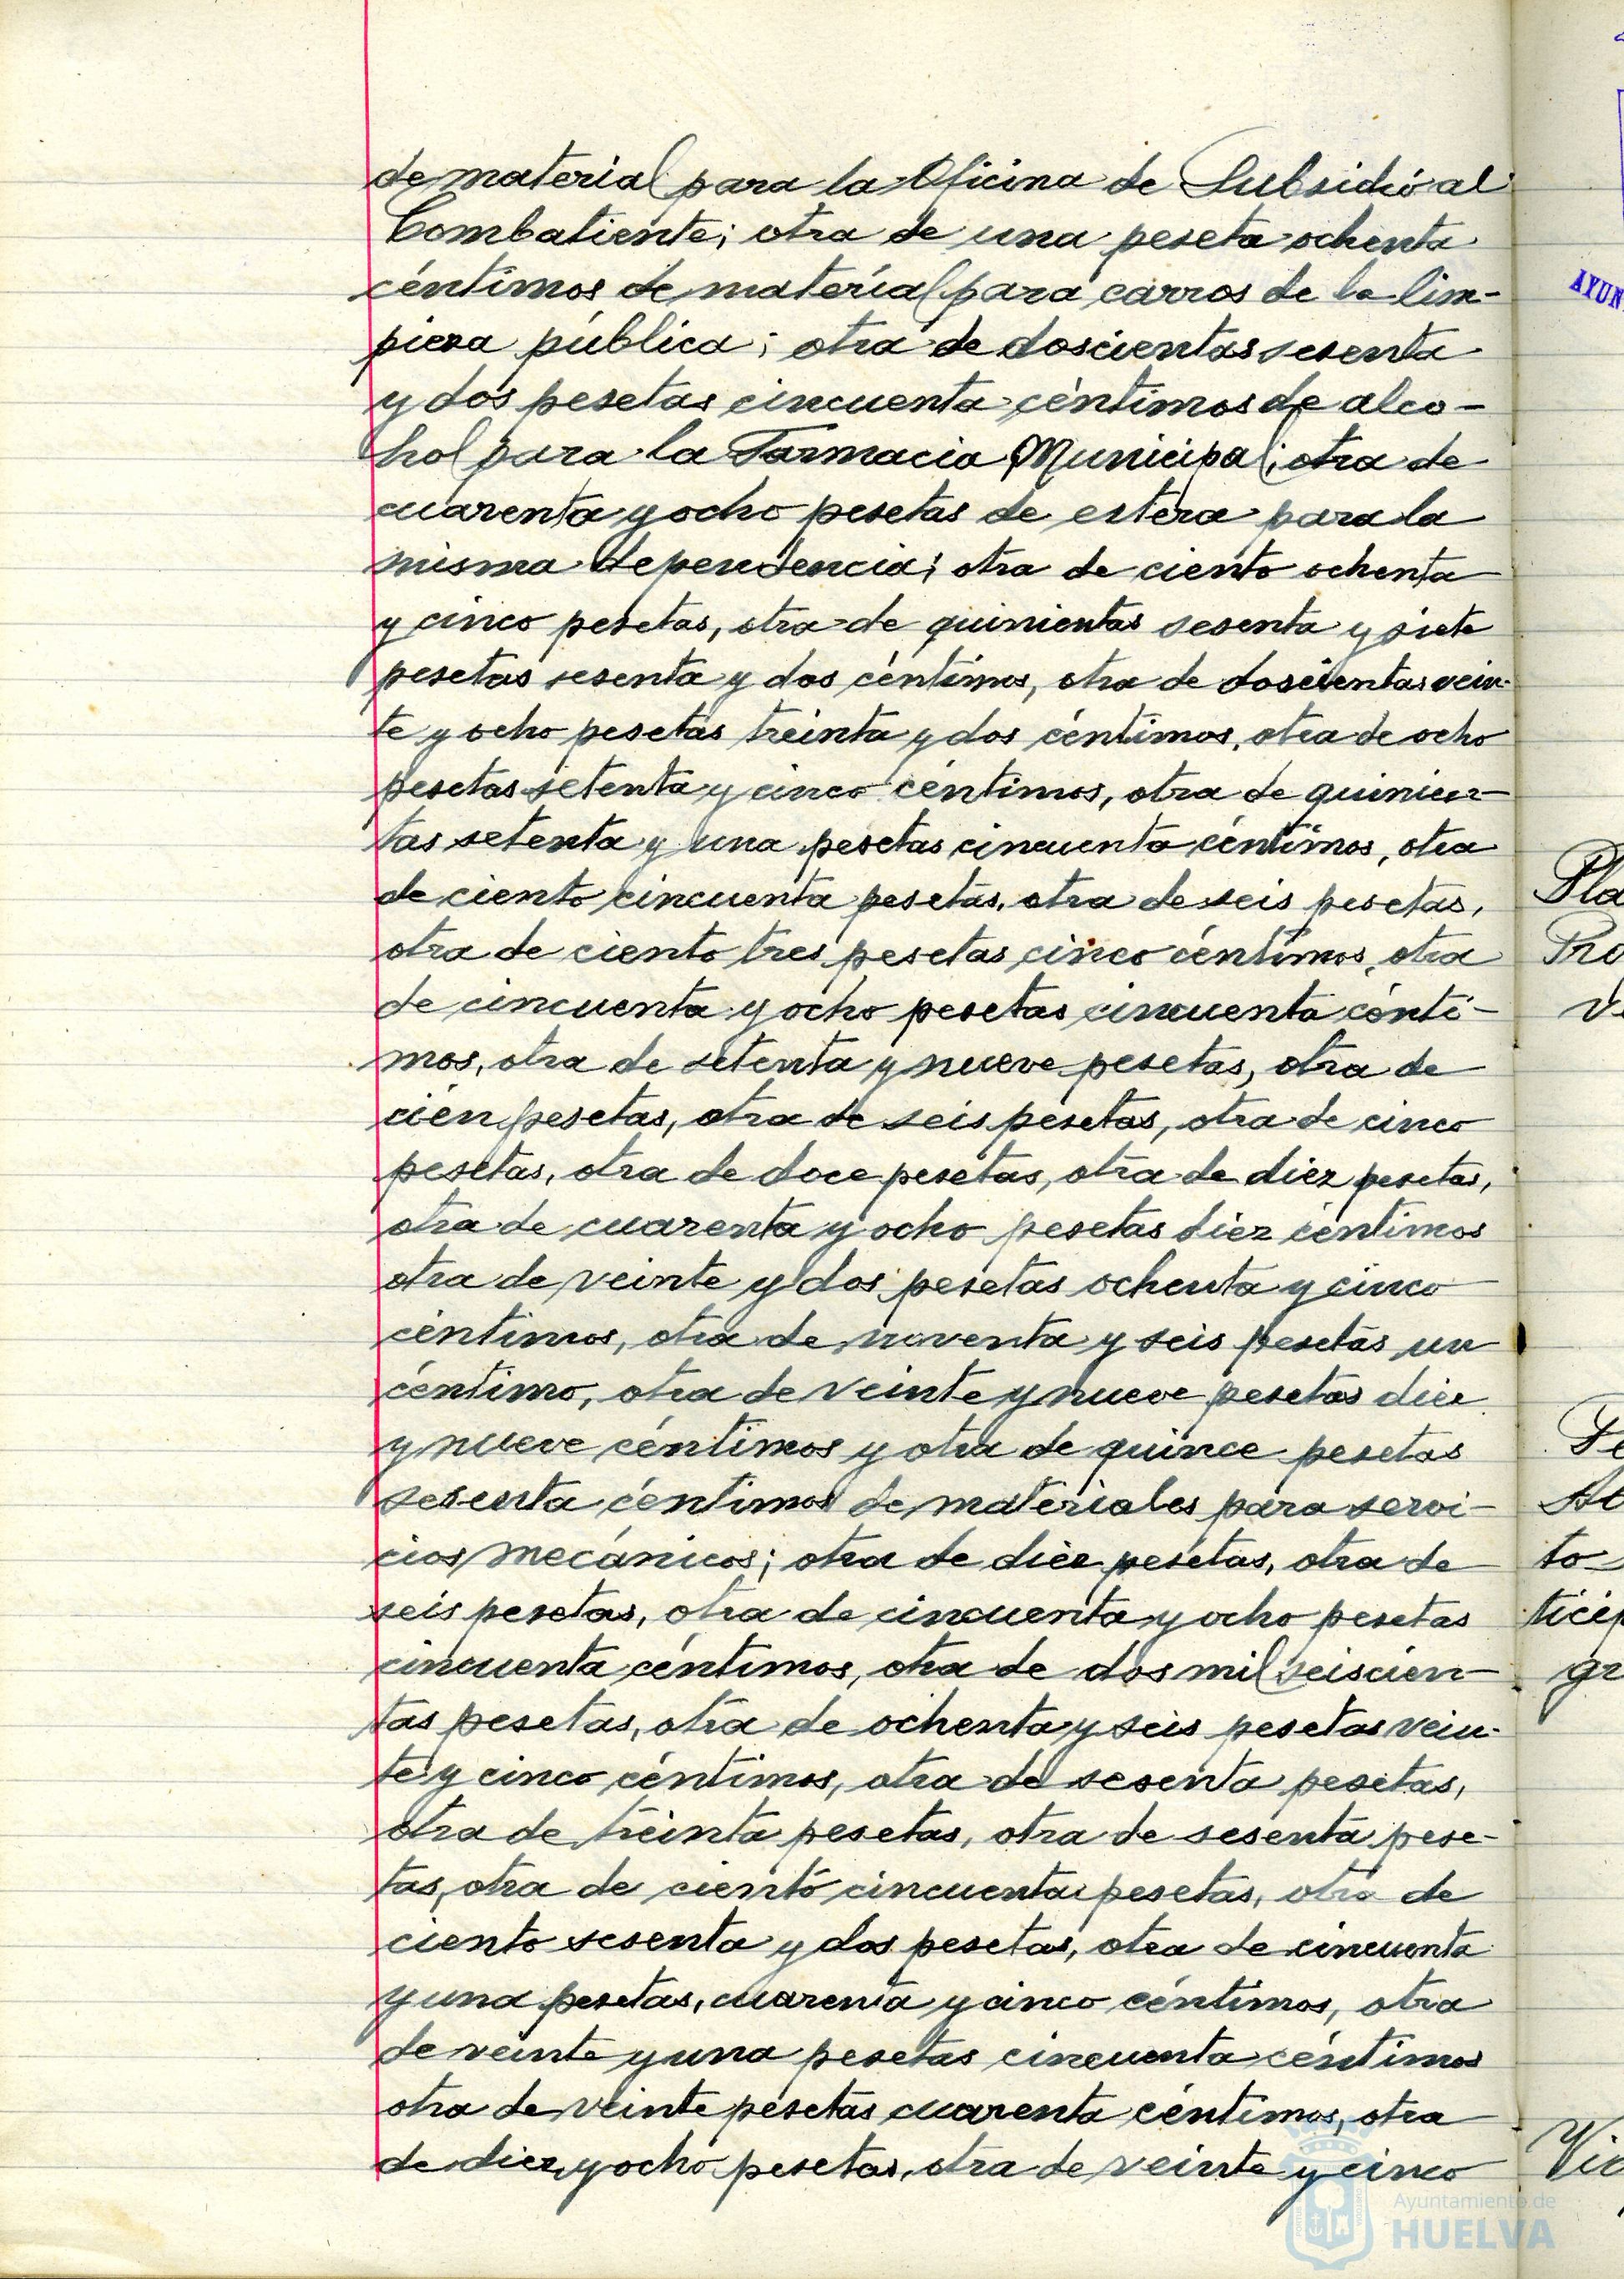 de material para la Oficina de Subsidio al
Combatiente; otra de una peseta ochenta
céntimos de material para carros de la lim-
pieza pública; otra de doscientas sesenta
y dos pesetas cincuenta céntimos de alco-
hol para la Farmacia Municipal; otra de
cuarenta y ocho pesetas de estera para la
misma dependencia; otra de ciento ochenta
y cinco pesetas, otra de quinientas sesenta y siete
pesetas sesenta y dos céntimos, otra de doscientas vein-
te y ocho pesetas treinta y dos céntimos, otra de ocho
pesetas setenta y cinco céntimos, otra de quinien-
tas setenta y una pesetas cincuenta céntimos, otra
de ciento cincuenta pesetas, otra de seis pesetas,
otra de ciento tres pesetas cinco céntimos, otra
de cincuenta y ocho pesetas cincuenta cénti-
mos, otra de setenta y nueve pesetas, otra de
cien pesetas, otra de seis pesetas, otra de cinco
pesetas, otra de doce pesetas, otra de diez pesetas,
otra de cuarenta y ocho pesetas diez céntimos
otra de veinte y dos pesetas ochenta y cinco
céntimos, otra de noventa y seis pesetas un
céntimo, otra de veinte y nueve pesetas diez
y nueve céntimos y otra de quince pesetas
sesenta céntimos de materiales para servi-
cios mecánicos; otra de diez pesetas, otra de
seis pesetas, otra de cincuenta y ocho pesetas
cincuenta céntimos, otra de dos mil seiscien-
tas pesetas, otra de ochenta y seis pesetas vein-
te y cinco céntimos, otra de sesenta pesetas,
otra de treinta pesetas, otra de sesenta pese-
tas, otra de ciento cincuenta pesetas, otra de
ciento sesenta y dos pesetas, otra de cincuenta
y una pesetas, cuarenta y cinco céntimos, otra
de veinte y una pesetas cincuenta céntimos
otra de veinte pesetas cuarenta céntimos, otra
de diez y ocho pesetas, otra de veinte y cinco
Ayuntamiento de
HUELVA
AYUN
Pla
Pro
to
ticip
gr